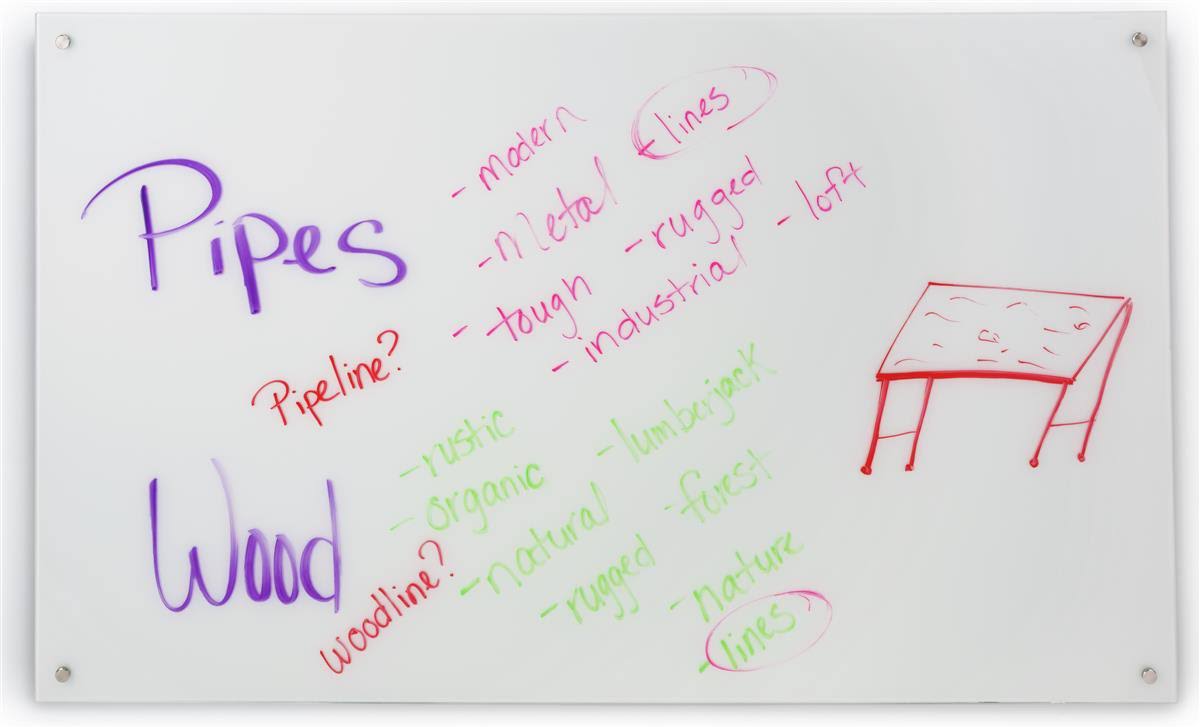 Pipes
- modern
- lines
- metal
- rugged
- loft
- tough
- industrial
Pipeline?
Wood
- rustic
- lumberjack
- organic
- forest
- natural
- nature
- rugged
- lines
Woodline?